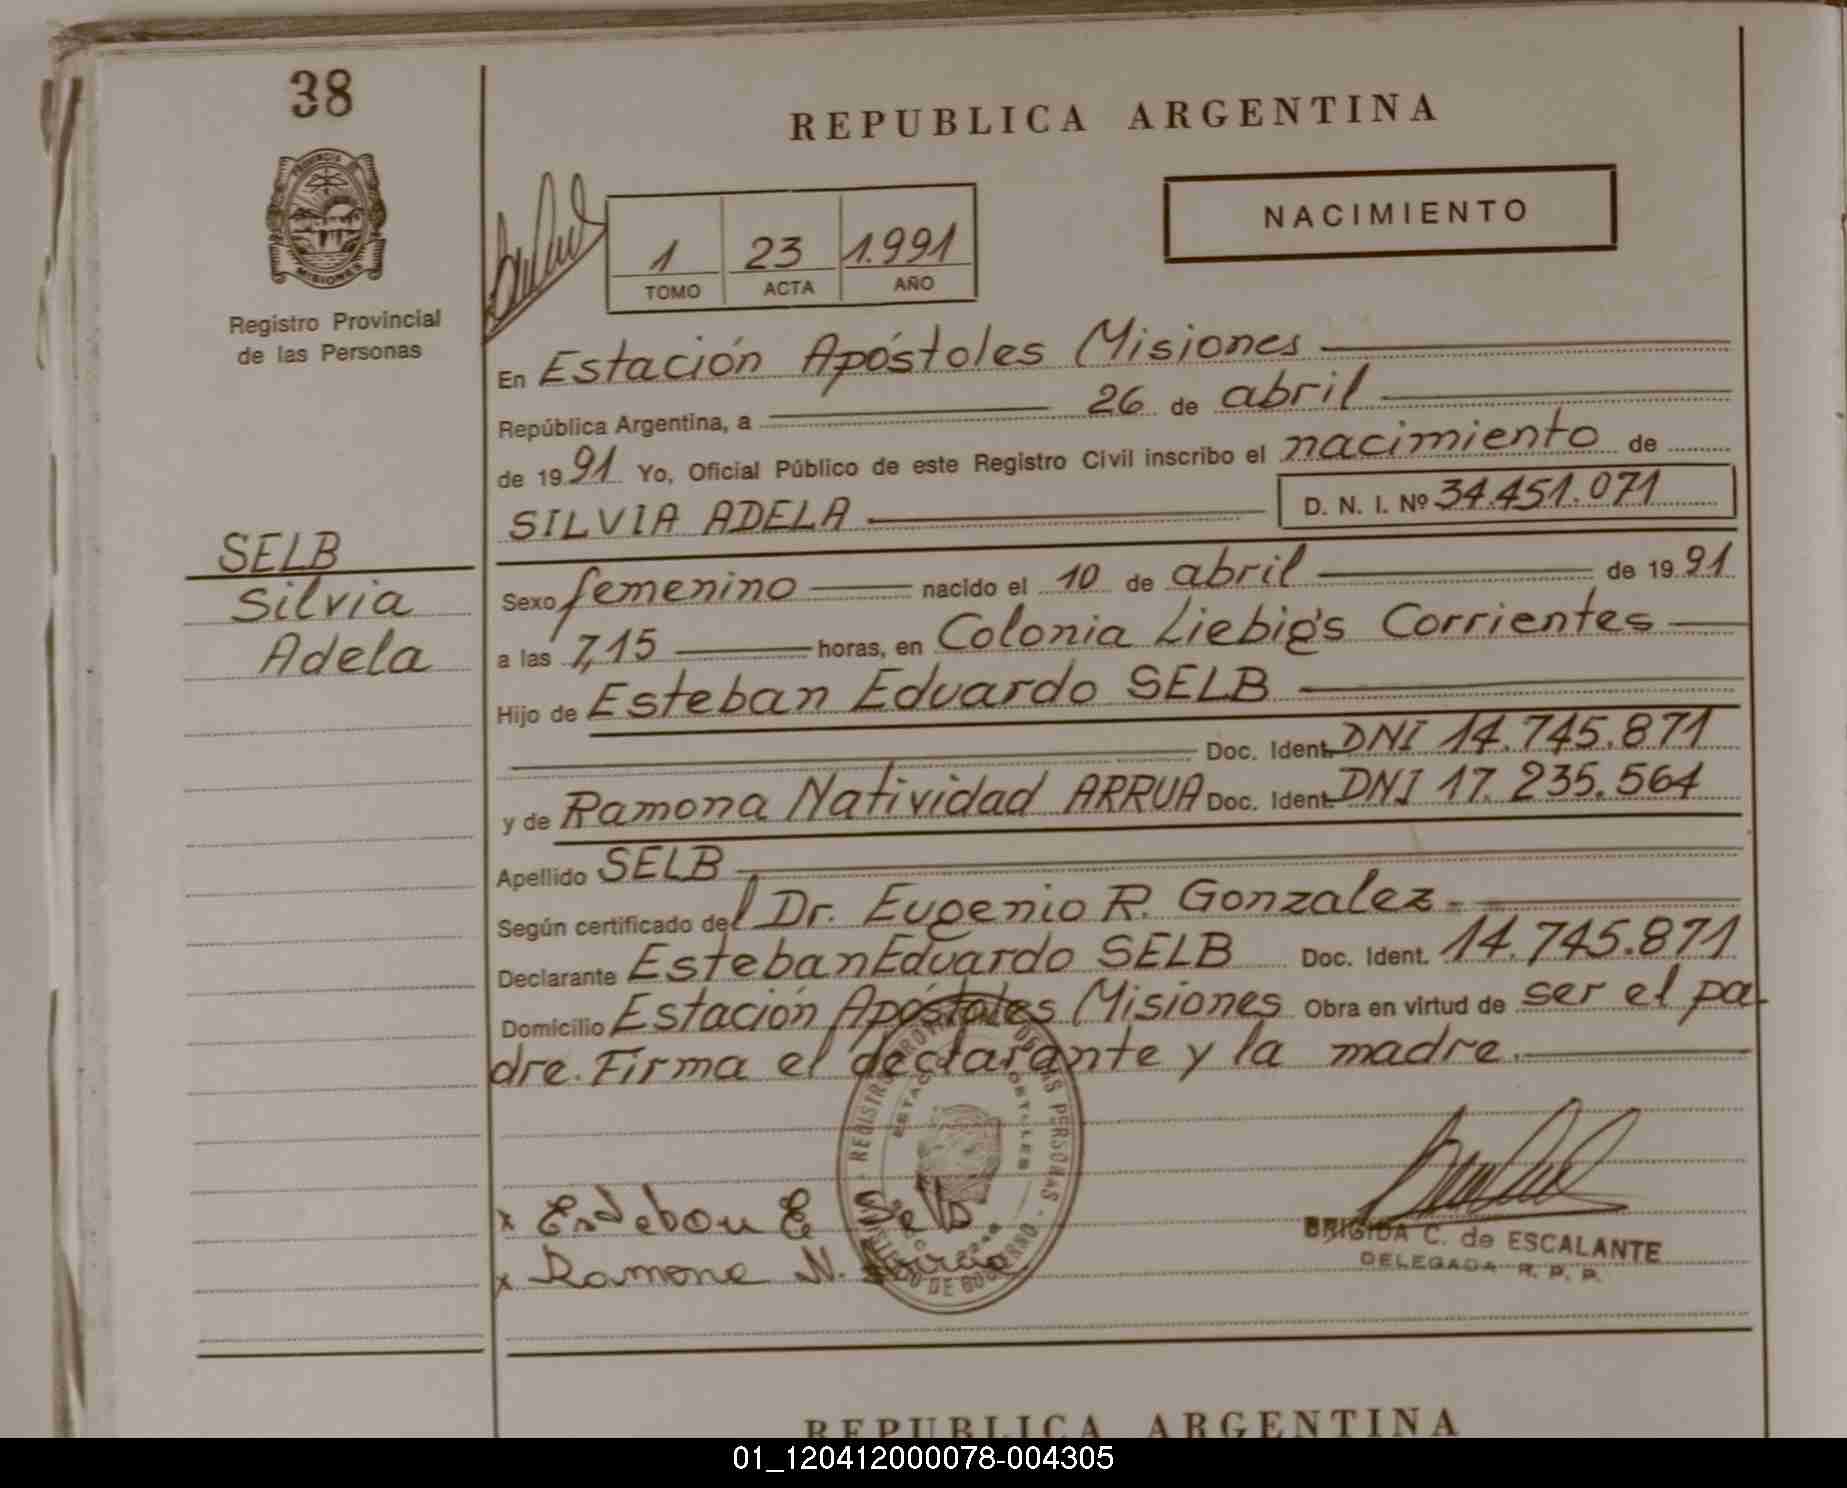 38
PROVINCIA DE
MISIONES
Registro Provincial
de las Personas
SELB
Silvia
Adela
REPUBLICA ARGENTINA
NACIMIENTO
1 23 1.991
TOMO ACTA AÑO
En Estación Apóstoles Misiones
República Argentina, a 26 de abril
de 1991 Yo, Oficial Público de este Registro Civil inscribo el nacimiento de
SILVIA ADELA D. N. I. Nº 34.451.071
Sexo femenino nacido el 10 de abril de 1991
a las 7,15 horas, en Colonia Liebig's Corrientes
Hijo de Esteban Eduardo SELB
Doc. Ident. DNI 14.745.871
y de Ramona Natividad ARRUA Doc. Ident. DNI 17.235.564
Apellido SELB
Según certificado del Dr. Eugenio R. Gonzalez
Declarante Esteban Eduardo SELB Doc. Ident. 14.745.871
Domicilio Estación Apóstoles Misiones Obra en virtud de ser el pa-
dre. Firma el declarante y la madre.
x Esteban E Selb
x Ramona N.
BRIGIDA C. de ESCALANTE
DELEGADA R. P. P.
REPUBLICA ARGENTINA
01_120412000078-004305